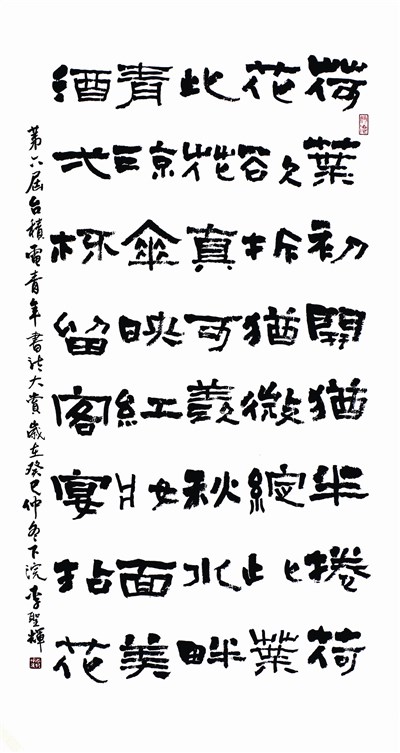 荷葉初開猶半捲荷
花欲拆猶微綻此葉
此花真可羨秋水畔
青涼傘映紅妝面美
酒弌杯留客宴拈花
第六屆台積電青年書法大賞歲在癸巳仲冬下浣李聖輝